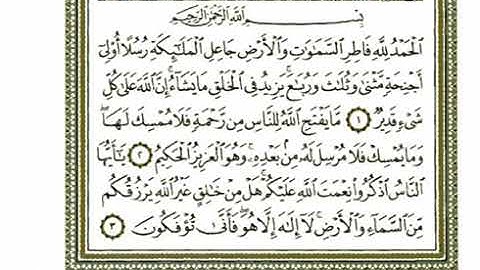 بِسْمِ اللَّهِ الرَّحْمَٰنِ الرَّحِيمِ
الْحَمْدُ لِلَّهِ فَاطِرِ السَّمَٰوَٰتِ وَالْأَرْضِ جَاعِلِ الْمَلَٰٓئِكَةِ رُسُلًا أُو۟لِىٓ
أَجْنِحَةٍ مَّثْنَىٰ وَثُلَٰثَ وَرُبَٰعَ ۚ يَزِيدُ فِى الْخَلْقِ مَا يَشَآءُ ۚ إِنَّ اللَّهَ عَلَىٰ كُلِّ
شَىْءٍ قَدِيرٌ ١ مَّا يَفْتَحِ اللَّهُ لِلنَّاسِ مِن رَّحْمَةٍ فَلَا مُمْسِكَ لَهَا ۖ
وَمَا يُمْسِكْ فَلَا مُرْسِلَ لَهُۥ مِنۢ بَعْدِهِۦ ۚ وَهُوَ الْعَزِيزُ الْحَكِيمُ ٢ يَٰٓأَيُّهَا
النَّاسُ اذْكُرُوا۟ نِعْمَتَ اللَّهِ عَلَيْكُمْ ۚ هَلْ مِنْ خَٰلِقٍ غَيْرُ اللَّهِ يَرْزُقُكُم
مِّنَ السَّمَآءِ وَالْأَرْضِ ۚ لَآ إِلَٰهَ إِلَّا هُوَ ۖ فَأَنَّىٰ تُؤْفَكُونَ ٣